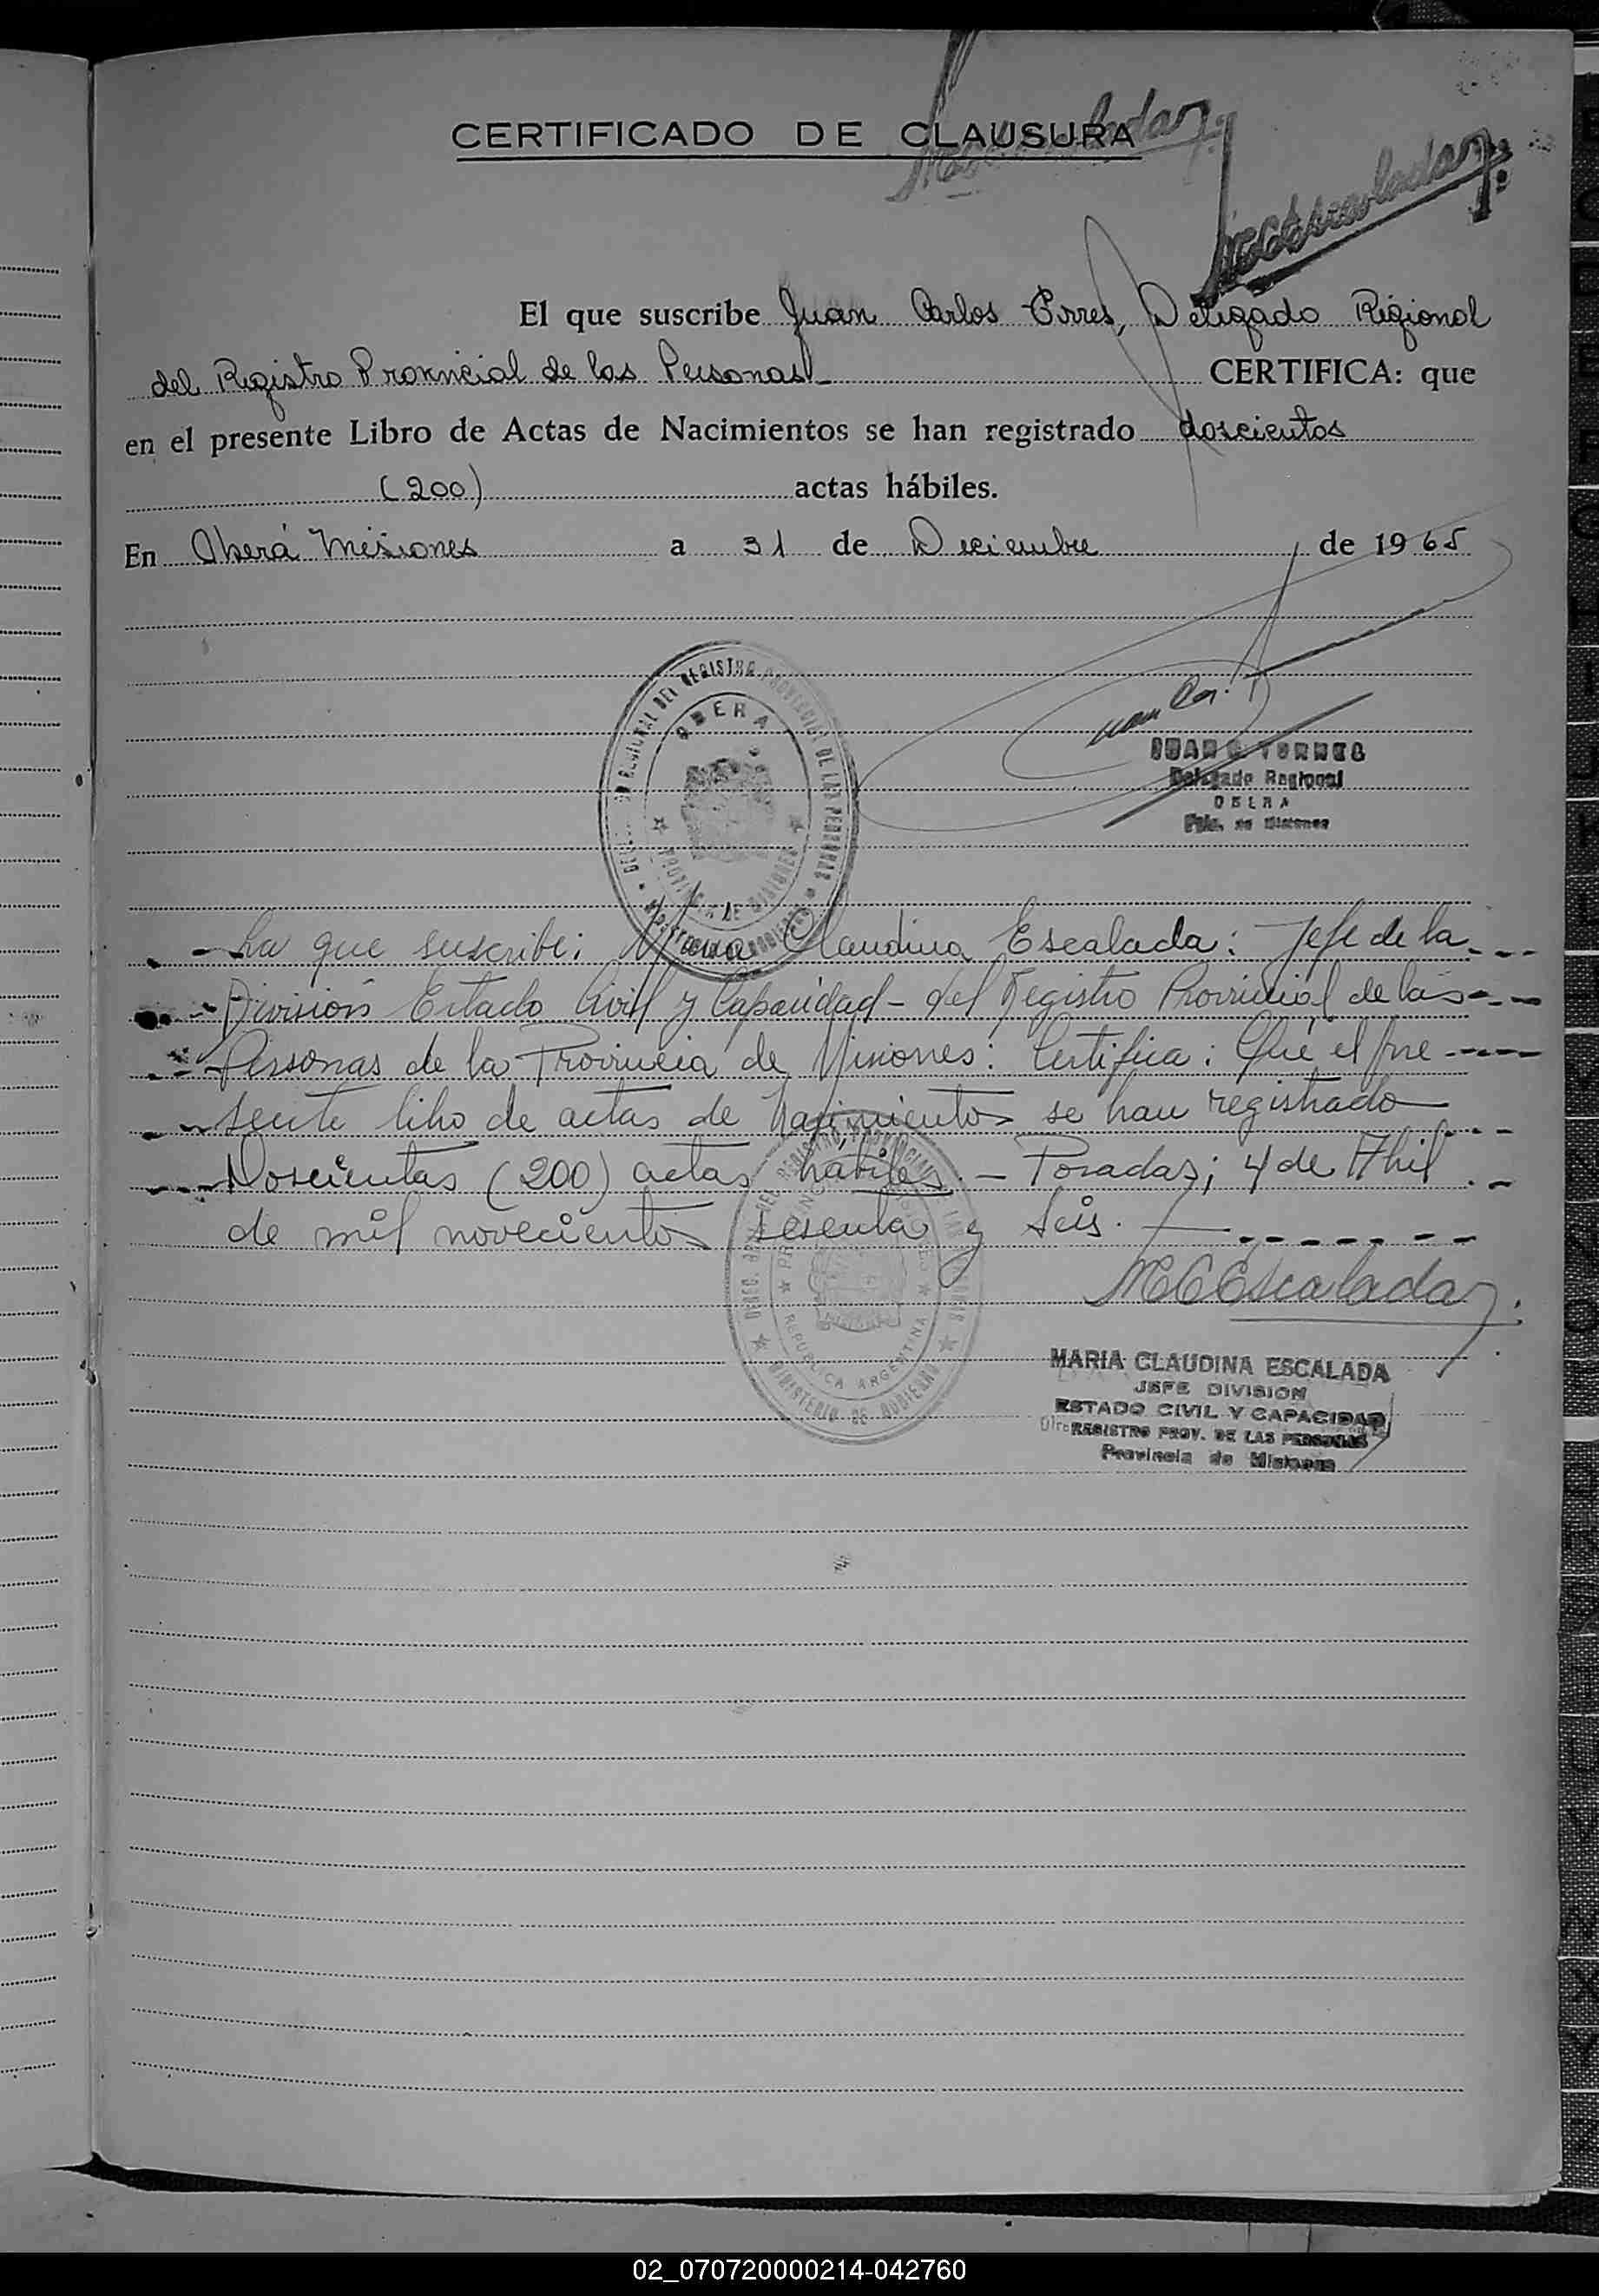 CERTIFICADO DE CLAUSURA
MCEscalada
El que suscribe Juan Carlos Torres, Delegado Regional
del Registro Provincial de las Personas CERTIFICA: que
en el presente Libro de Actas de Nacimientos se han registrado doscientos
(200) actas hábiles.
En Oberá Misiones a 31 de Diciembre de 1965
OBERA
JUAN C. TORRES
Delegado Regional
OBERA
Pcia. de Misiones
La que suscribe: Maria Claudina Escalada: Jefe de la
División Estado Civil y Capacidad - del Registro Provincial de las
Personas de la Provincia de Misiones: Certifica: Que el pre
sente libro de actas de Nacimientos se han registrado
Doscientas (200) actas habiles. - Posadas; 4 de Abril
de mil novecientos sesenta y seis.
MCEscalada
REPUBLICA ARGENTINA
MINISTERIO DE GOBIERNO
MARIA CLAUDINA ESCALADA
JEFE DIVISION
ESTADO CIVIL Y CAPACIDAD
REGISTRO PROV. DE LAS PERSONAS
Provincia de Misiones
02_070720000214-042760